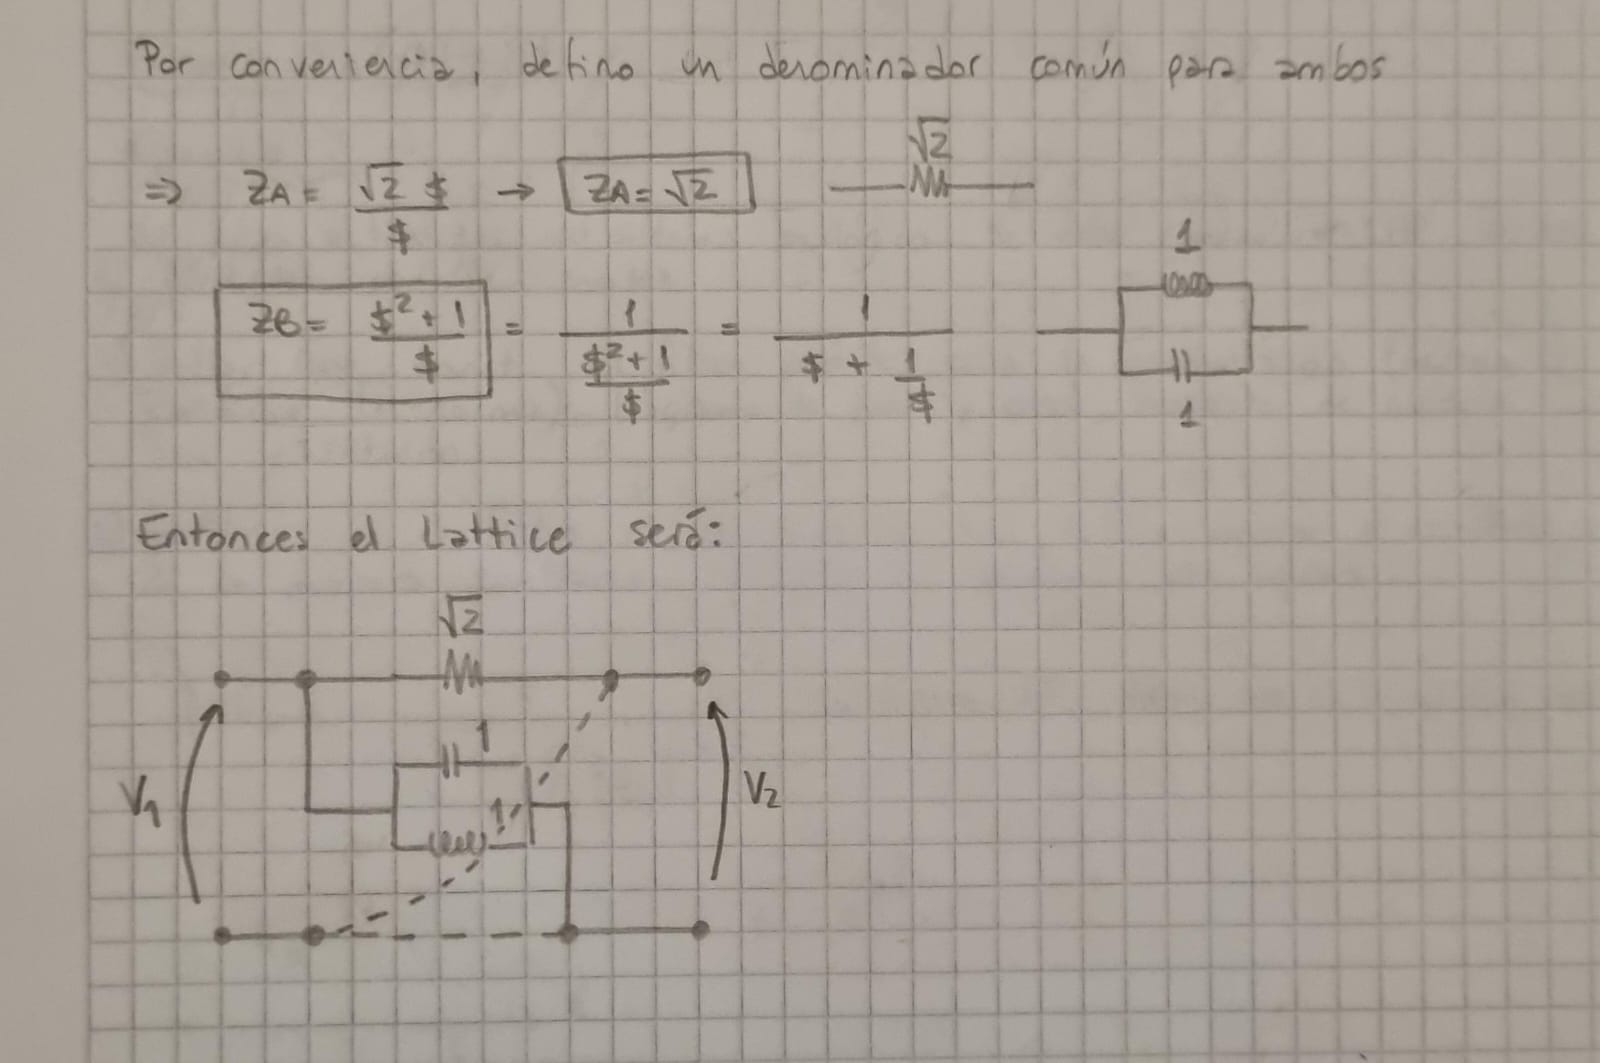 Por conveniencia, defino un denominador común para ambos
√2
⇒ ZA = √2 $ / $ → ZA = √2
1
ZB = $² + 1 / $ = 1 / ($² + 1 / $) = 1 / ($ + 1/$)
1
Entonces el Lattice será:
√2
1
V1 1 V2